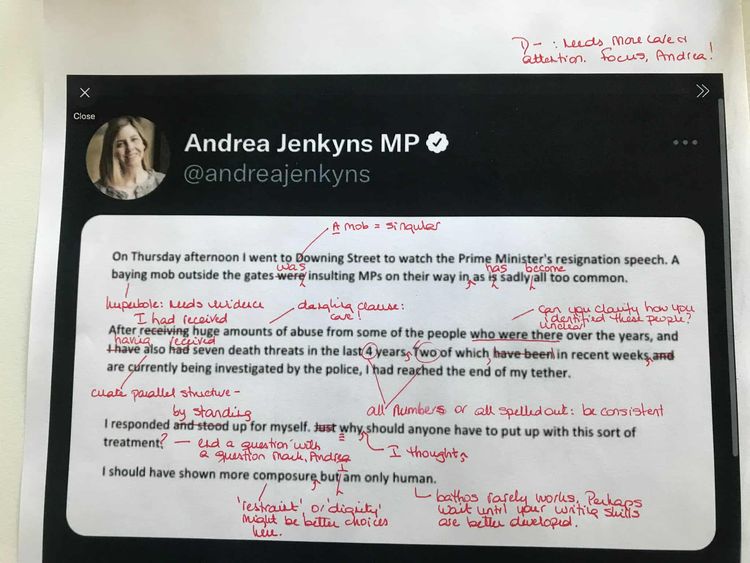 D- : Needs more care &
attention. Focus, Andrea!
Close
Andrea Jenkyns MP
@andreajenkyns
A mob = singular
On Thursday afternoon I went to Downing Street to watch the Prime Minister's resignation speech. A
was
has
become
baying mob outside the gates were insulting MPs on their way in, as is sadly all too common.
hyperbole: needs evidence
dangling clause:
care!
can you clarify how you
identified these people?
unclear
I had received
After receiving huge amounts of abuse from some of the people who were there over the years, and
having
received
I have also had seven death threats in the last 4 years. Two of which have been in recent weeks, and
are currently being investigated by the police, I had reached the end of my tether.
create parallel structure -
all numbers or all spelled out: be consistent
by standing
I responded and stood up for myself. Just why should anyone have to put up with this sort of
treatment?
- end a question with
a question mark, Andrea
I thought,
I
I should have shown more composure but am only human.
'restraint' or 'dignity'
might be better choices
here.
bathos rarely works. Perhaps
wait until your writing skills
are better developed.